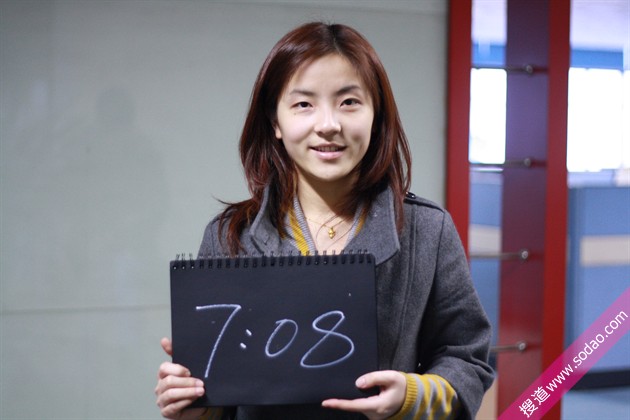 7:08
搜道www.sodao.com